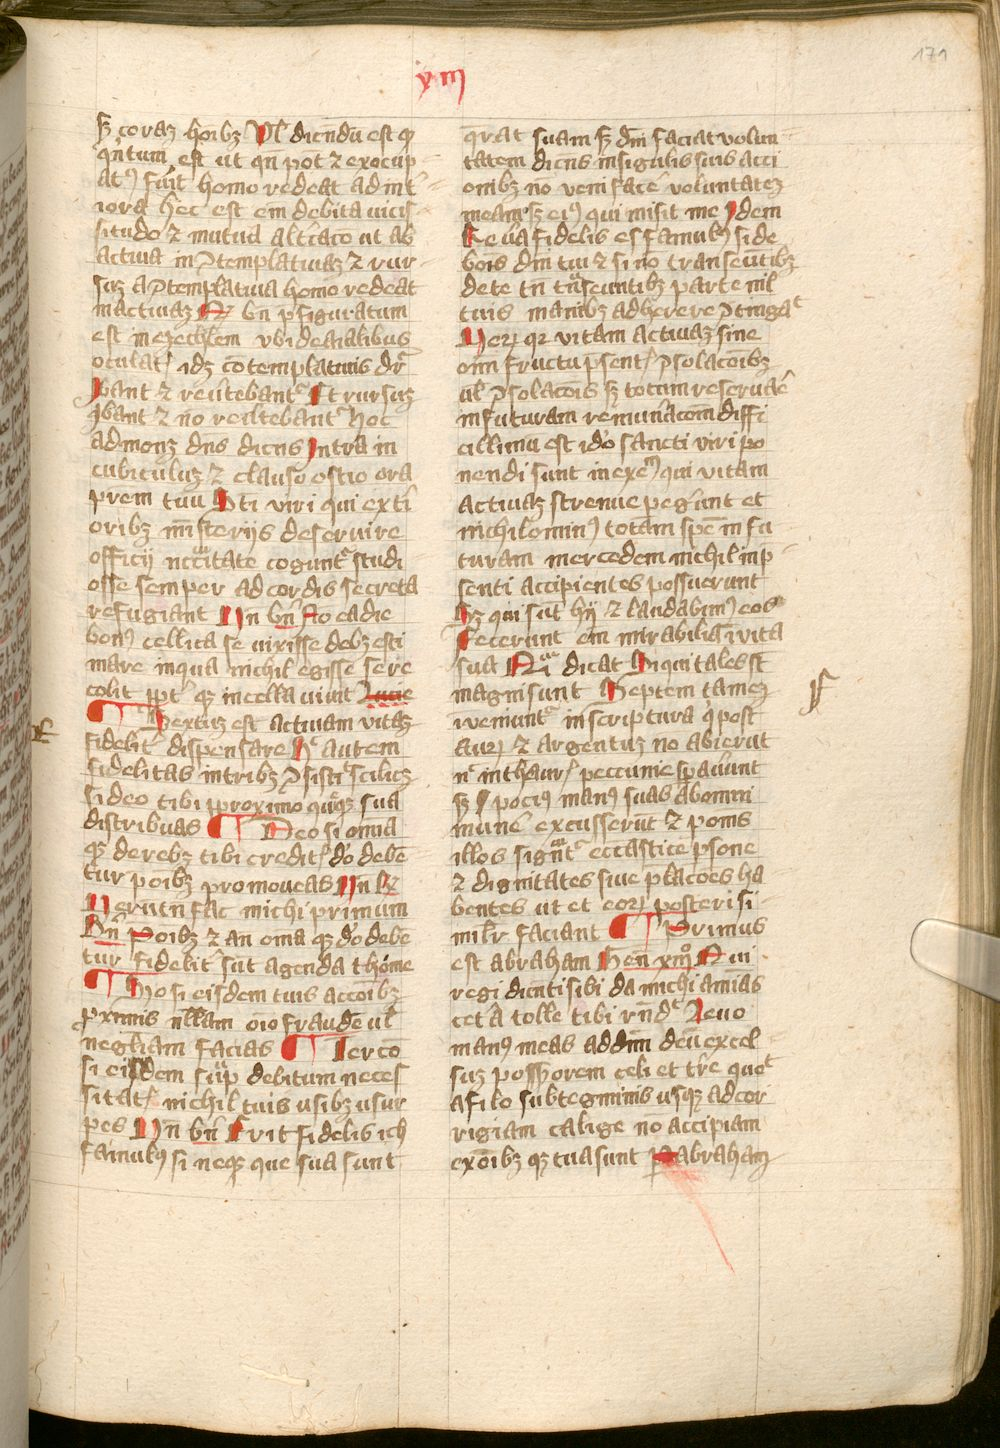 171
xiii
sꝫ coraꝫ hoibꝫ Vl dicendū est ꝙ
qn̄tum est ut qn̄ pot ⁊ exocup
atꝰ fuit homo redeat ad int̄
iora hec est em̄ debita vicis
situdo ⁊ mutua alt̄cac̄o ut ab
activa in ꝯtemplativaꝫ ⁊ rur
suꝫ a ꝯtemplativa homo redeat
in activaꝫ bn̄ p̄figuratum
est in ezechielem vbi de aialibus
oculat idꝫ cōtemplativis dr̄
Ibant ⁊ rev̄tebant᷑ Et rursuꝫ
ibant ⁊ nō rev̄tebant᷑ hoc
admonꝫ dn̄s dicens Intra in
cubiculuꝫ ⁊ clauso ostio ora
prem tuū Sti viri qui ext̄i
oribꝫ mīsterijs deservire
officij nccitate cogunt᷑ studi
osse semper ad cordis secreta
refugiant Un̄ bn̄ sō ea die
bonꝰ cellita se vixisse debꝫ esti
mare in qua nichil egisse fere
colit ppt̄ qꝫ in cella vivit lucie
Sextuꝫ est activam vitaꝫ
fidelit̄ dispensare Hec autem
fidelitas in tribꝫ ꝯsistit scilicꝫ
si deo tibi proximo qn̄qꝫ sua
distribuas Deo si om̄ia
qꝫ de rebꝫ tibi credit dō debē
tur p̄oibꝫ promoveas Un̄
Verūtn̄ fac michi primum
Bn̄ p̄oibꝫ ⁊ an̄ om̄a qꝫ dō debē
tur fidelit̄ sūt agenda thōme
Ho si eisdem tuis acc̄oibꝫ
pximis nllam oīo fraudē ul̄
negligām facias Terco
si eisdem sup̄ debitum neces
sitat nichil tuis usibꝫ usur
pes Un̄ bn̄ Erit fidelis ich
famulꝰ si neqꝫ que sua sunt
q̄rat suam sꝫ dm̄ faciat volun
tatem dicens in sigulis suis acti
onibꝫ nō veni facē voluntateꝫ
meam sꝫ eiꝰ qui misit me Idem
Re v̄a fidelis es famulꝰ si de
bois dm̄ tui ⁊ si nō transeūtibꝫ
de te tn̄ tn̄seuntibꝫ p̄ te nil
tuis manibꝫ adherere ꝯtingat
Veꝝ qꝛ vitam activaꝫ sine
om̄i fructu p̄sent ꝯsolac̄oibꝫ
ul̄ ꝯsolac̄ois sꝫ totum reservāe
in futuram remūnac̄om diffi
cillimū est idō sancti viri po
nendi sunt in exem̄ qui vitam
activaꝫ strenue peḡunt et
nichilominꝰ totam spē in fu
turam mercedem nichil in p̄
senti accipientes possuerunt
Sꝫ qui sūt hij ⁊ laudabimꝰ eos
Fecerunt em̄ mirabilia ī vita
sua dicat Siqui tales st̄
magni sunt Septem tameꝫ
īveniunt᷑ in scriptura q̄ post
auꝝ ⁊ argentuꝫ nō abierūt
nc̄ in thaur peccunie spav̄unt
sꝫ pociꝰ manꝰ suas ab omni
munē excusserūt ⁊ p omīs
illos sign̄t᷑ ecc̄astice p̄sone
⁊ dignitates sive p̄lac̄oes ha
bentes ut et eoꝝ posteri si
milr̄ faciant Primus
est abraham Gen̄ xiiii Qui
regi dicenti sibi da michi aīas
cet̄a tolle tibi rn̄d᷑ Levo
manꝰ meas ad dm̄ deū excel
suꝫ possorem celi et tr̄e quet
a filo subtegminis usqꝫ ad cor
rigiam calige nō accipiam
ex oībꝫ qꝫ tua sunt abrahaꝫ